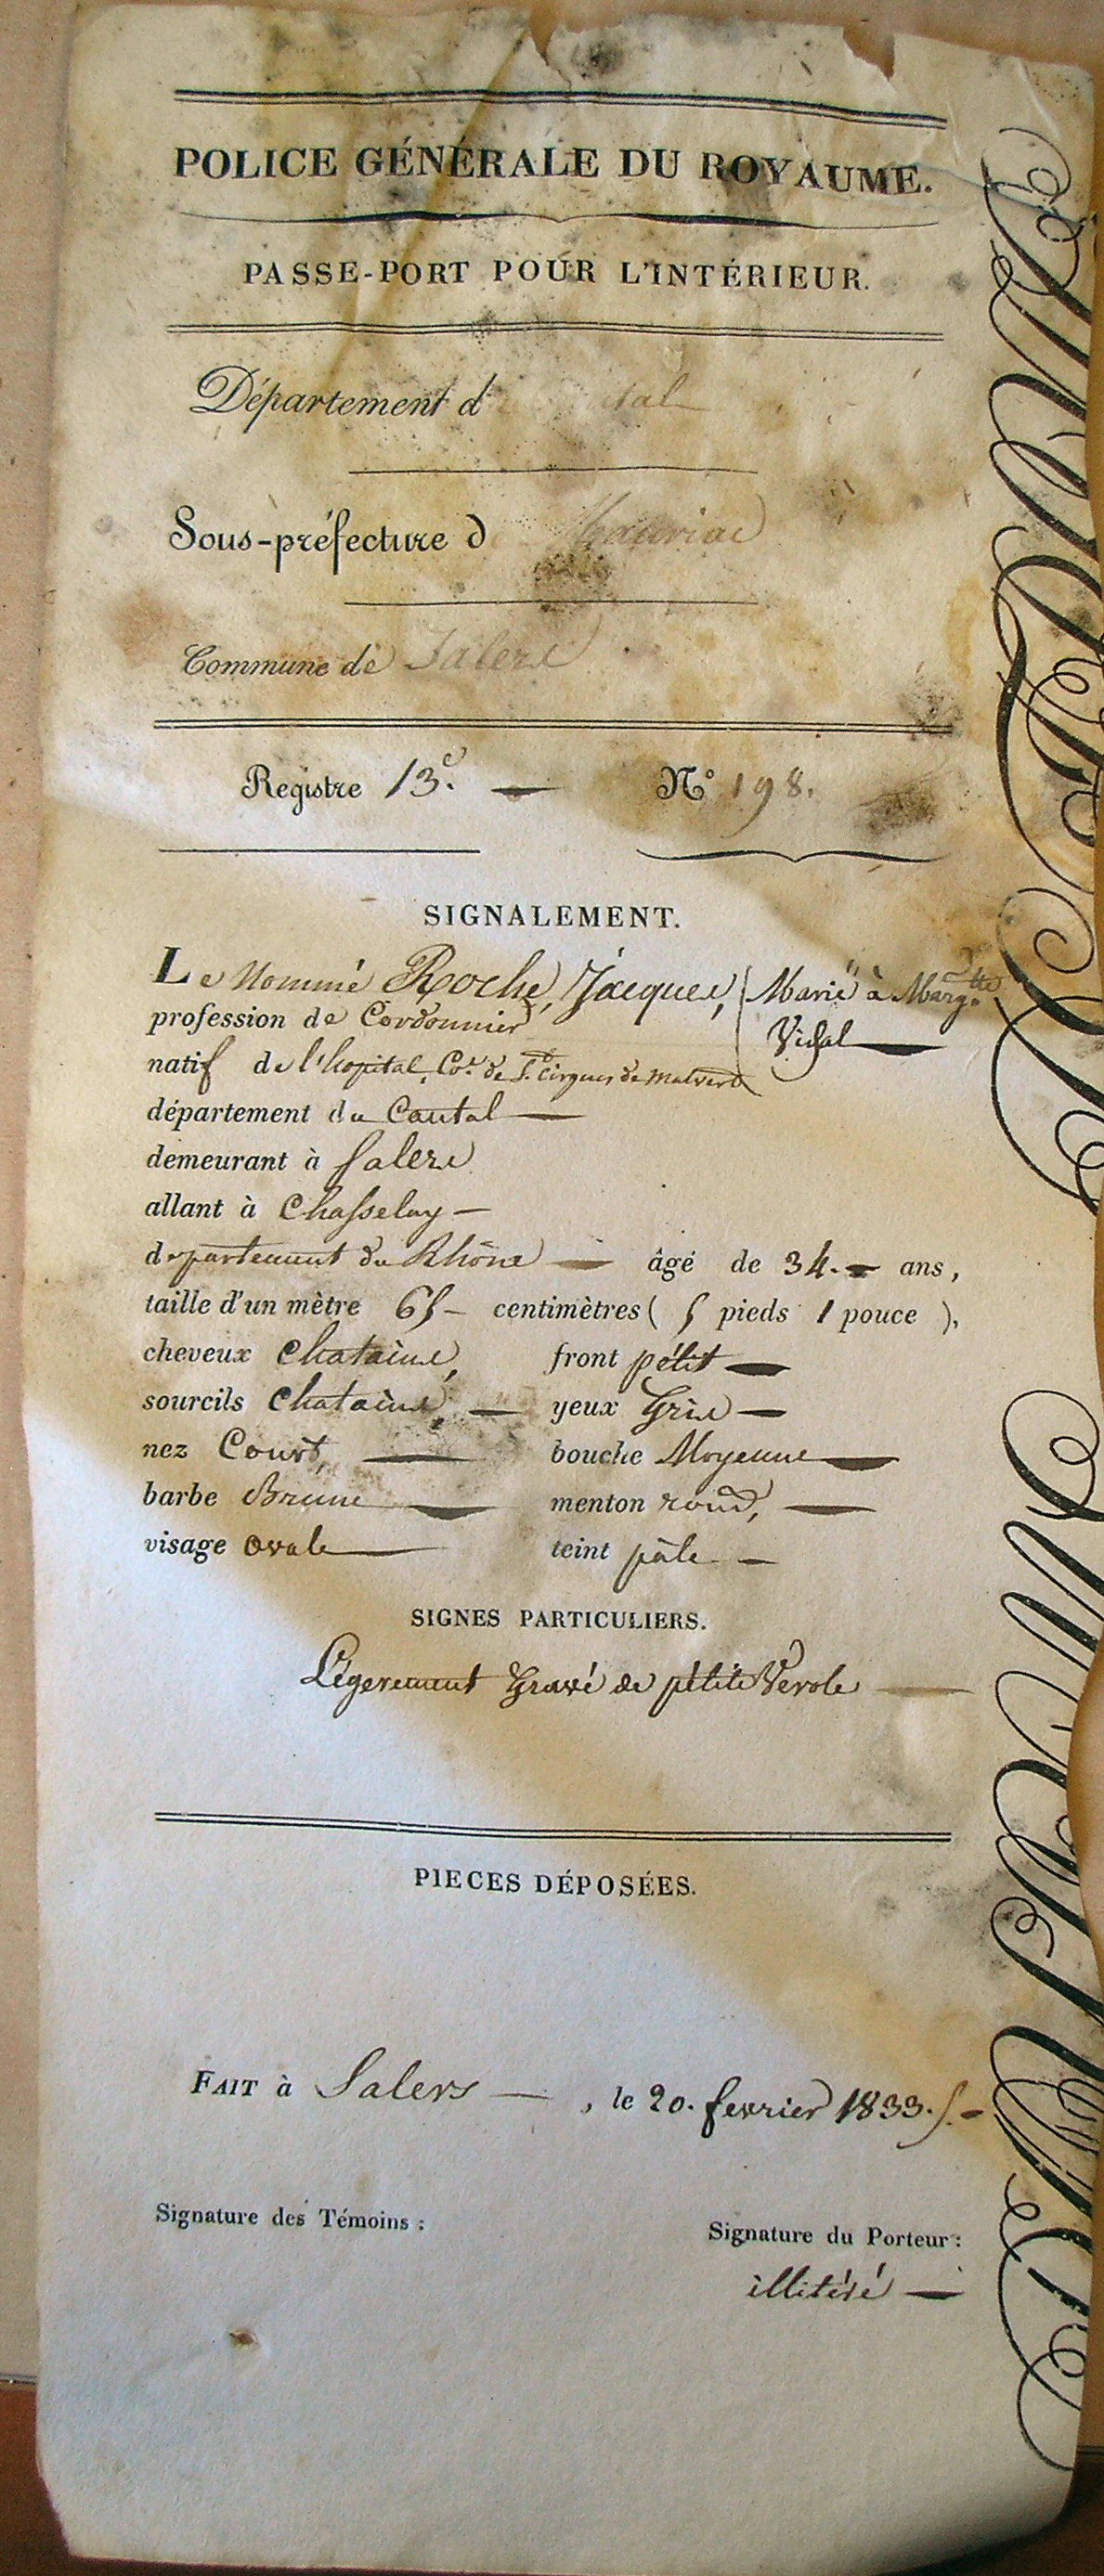 POLICE GÉNÉRALE DU ROYAUME.
PASSE-PORT POUR L'INTÉRIEUR.
Département d
Sous-préfecture d Mauriac
Commune de Salers
Registre 13e. N° 198.
SIGNALEMENT.
Le nommé Roche, Jacques, Marié à Marg.tte
Vidal
profession de Cordonnier
natif de l'hopital, Co.e de St. Cirgues de Malvert
département du Cantal
demeurant à Salers
allant à Chasselay
departement du Rhône âgé de 34. ans,
taille d'un mètre 65 centimètres ( 5 pieds 1 pouce ),
cheveux Chatains, front pétit
sourcils Chatains, yeux Gris
nez Court, bouche Moyenne
barbe Brune menton rond,
visage Ovale teint pâle
SIGNES PARTICULIERS.
Légerement Gravé de pétite Verole
PIECES DÉPOSÉES.
FAIT à Salers , le 20. fevrier 1833.
Signature des Témoins :
Signature du Porteur :
illitéré